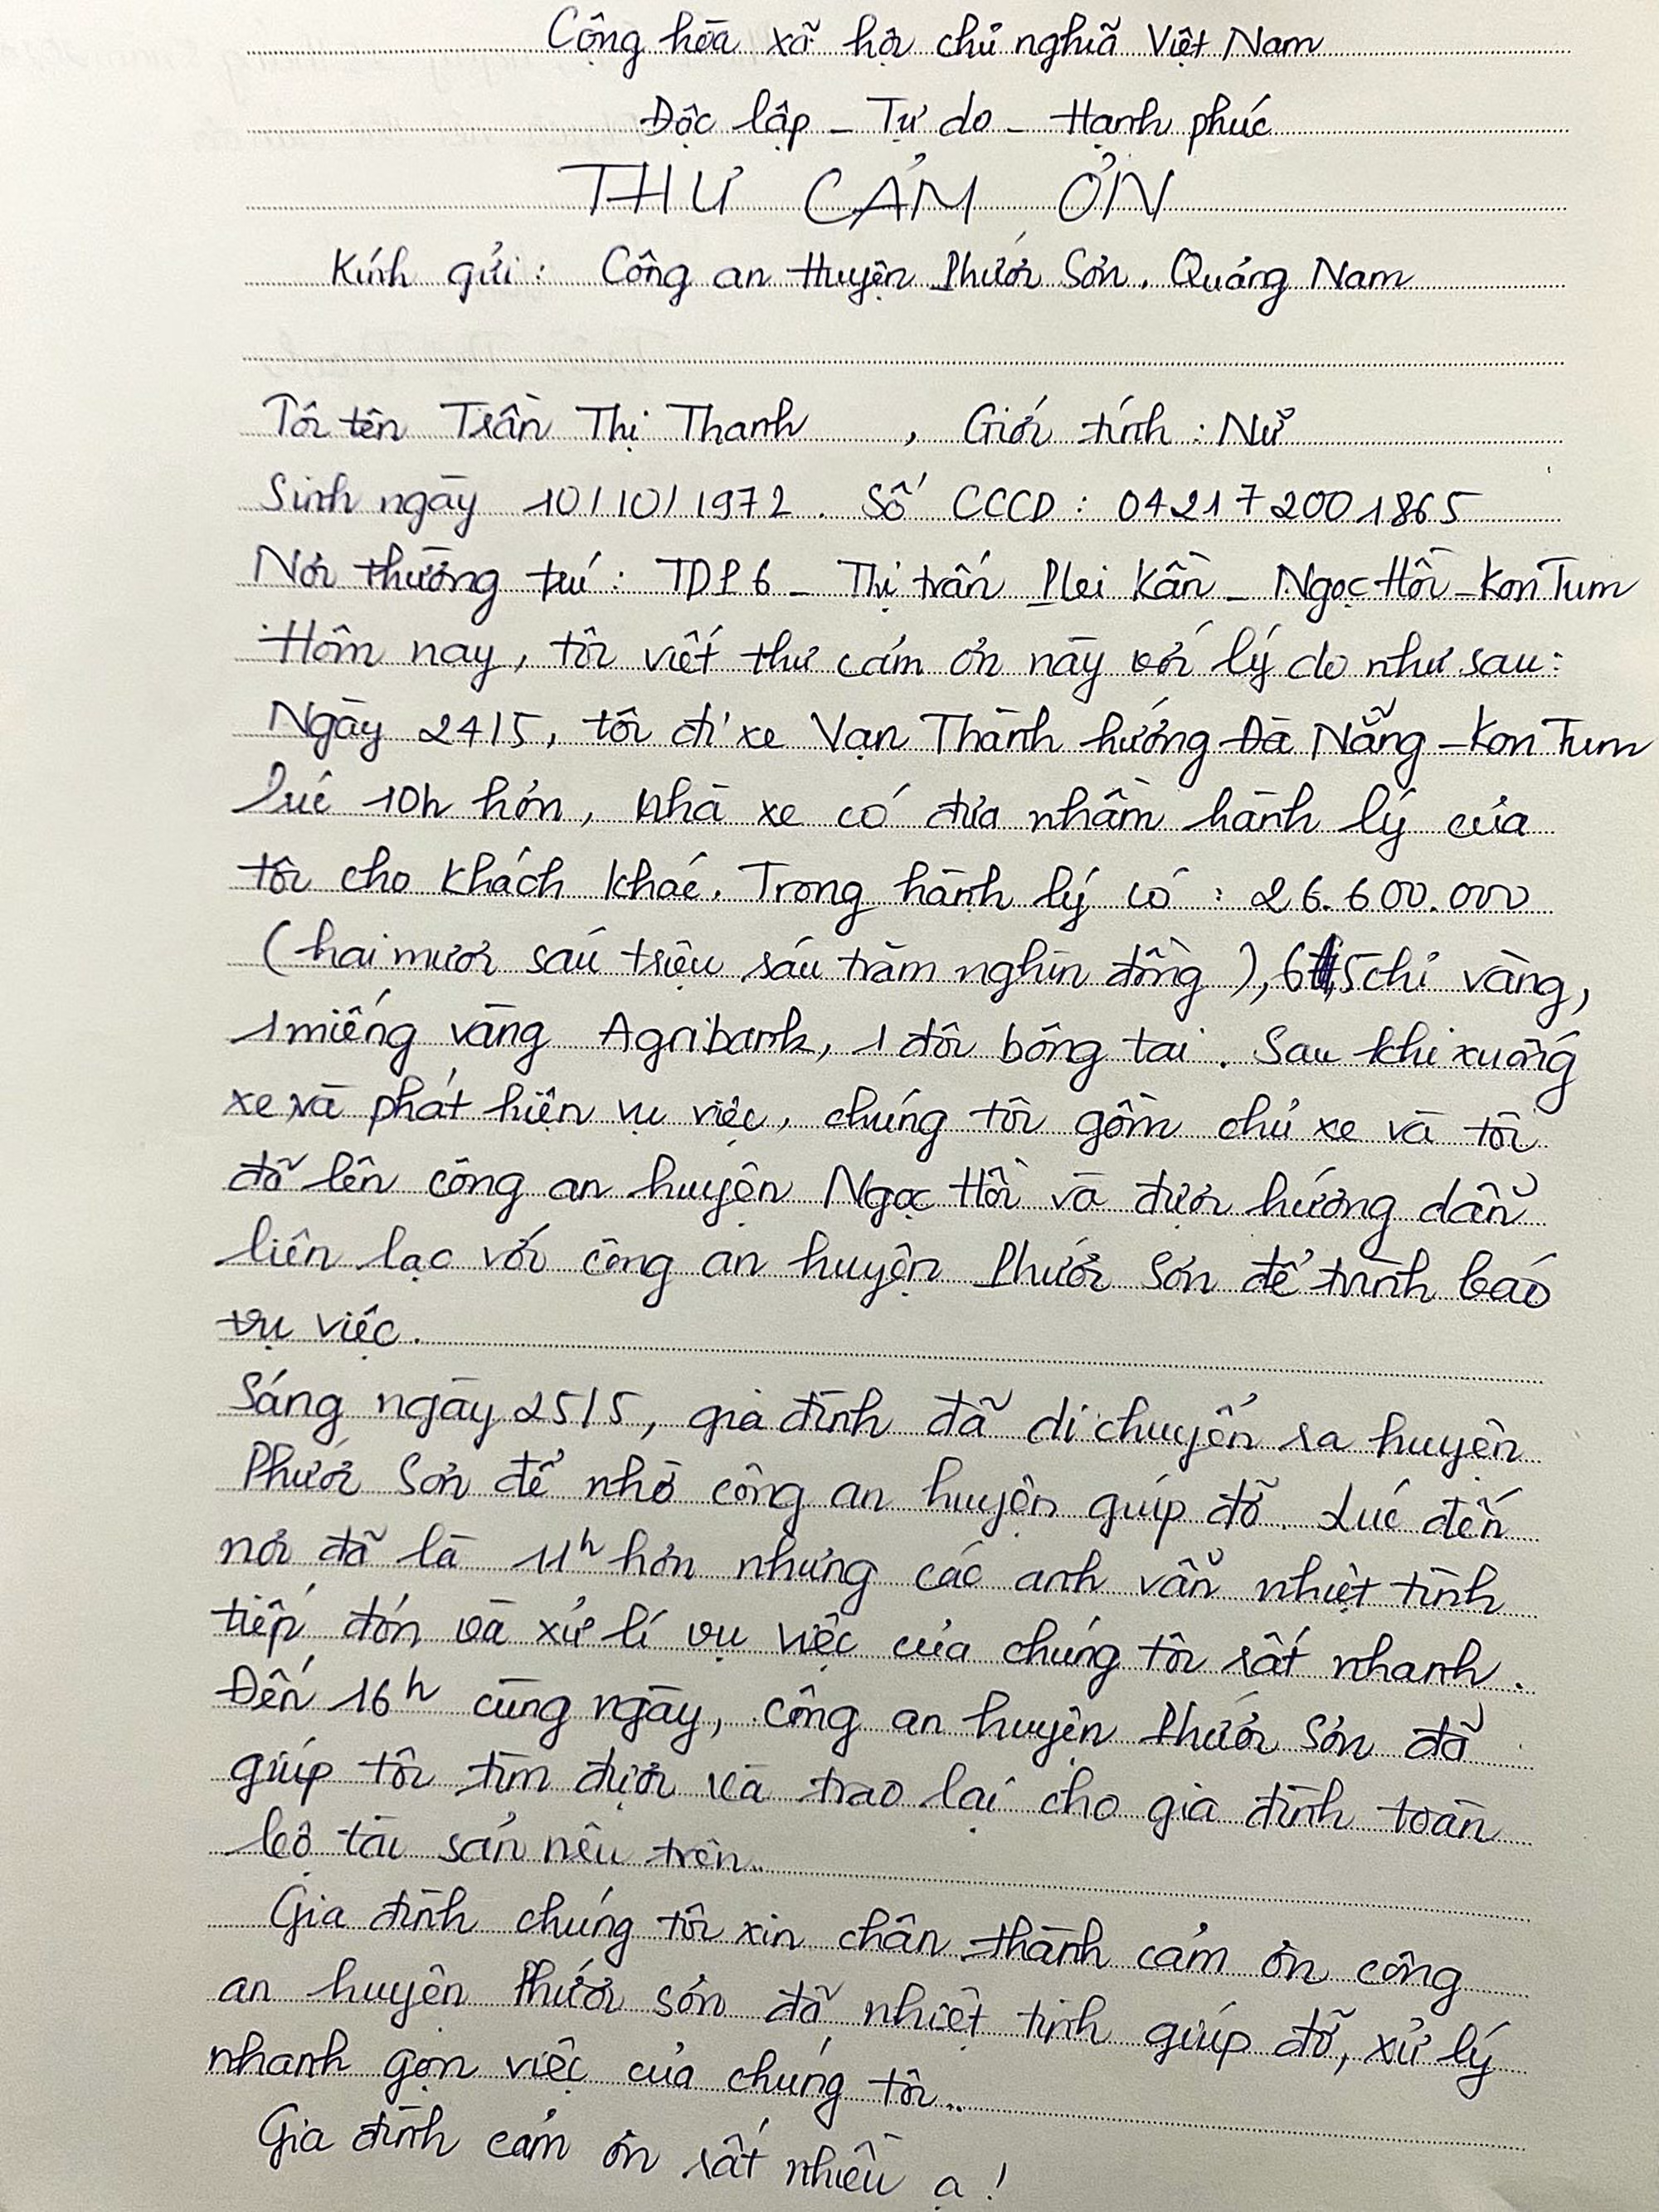 Cộng hòa xã hội chủ nghĩa Việt Nam
Độc lập - Tự do - Hạnh phúc
THƯ CẢM ƠN
Kính gửi : Công an Huyện Phước Sơn. Quảng Nam
Tôi tên Trần Thị Thanh , Giới tính : Nữ
Sinh ngày 10/10/1972. Số CCCD : 042172001865
Nơi thường trú : TDP 6 - Thị trấn Plei Kần - Ngọc Hồi - Kon Tum
Hôm nay, tôi viết thư cảm ơn này với lý do như sau :
Ngày 24/5, tôi đi xe Vạn Thành hướng Đà Nẵng - Kon Tum
lúc 10h hơn, nhà xe có đưa nhầm hành lý của
tôi cho khách khác. Trong hành lý có : 26.600.000
(hai mươi sáu triệu sáu trăm nghìn đồng), 6,5 chỉ vàng,
1 miếng vàng Agribank, 1 đôi bông tai. Sau khi xuống
xe và phát hiện vụ việc, chúng tôi gồm chủ xe và tôi
đã lên công an huyện Ngọc Hồi và được hướng dẫn
liên lạc với công an huyện Phước Sơn để trình báo
vụ việc.
Sáng ngày 25/5, gia đình đã di chuyển ra huyện
Phước Sơn để nhờ công an huyện giúp đỡ. Lúc đến
nơi đã là 11h hơn nhưng các anh vẫn nhiệt tình
tiếp đón và xử lí vụ việc của chúng tôi rất nhanh.
Đến 16h cùng ngày, công an huyện Phước Sơn đã
giúp tôi tìm được và trao lại cho gia đình toàn
bộ tài sản nêu trên..
Gia đình chúng tôi xin chân thành cảm ơn công
an huyện Phước Sơn đã nhiệt tình giúp đỡ, xử lý
nhanh gọn việc của chúng tôi..
Gia đình cảm ơn rất nhiều ạ !